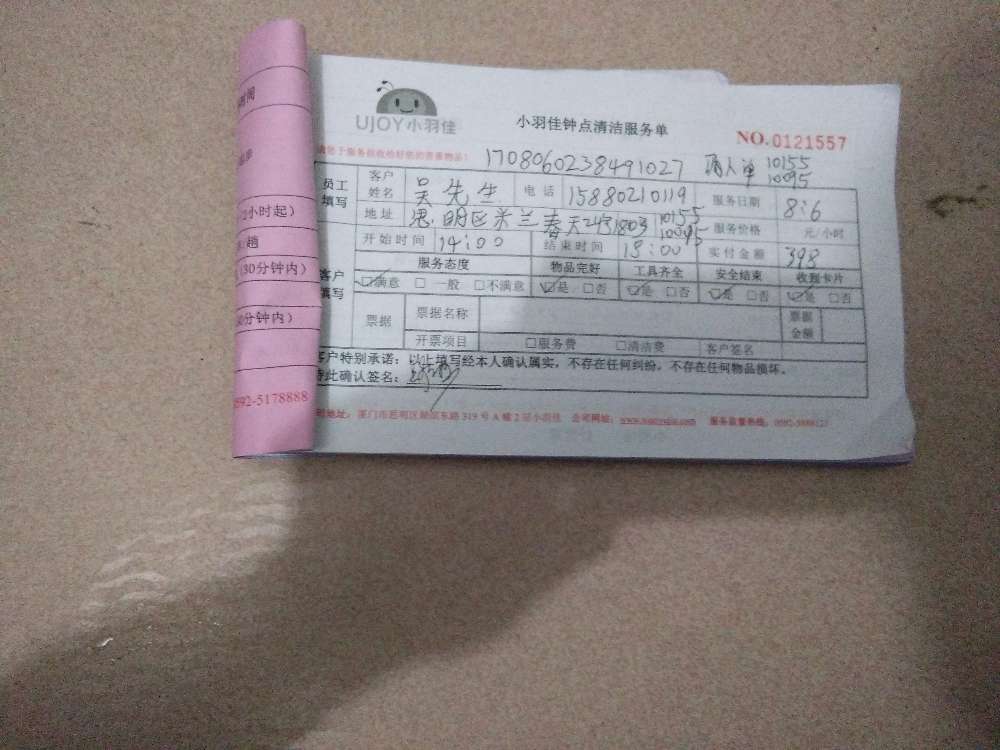 UJOY小羽佳
小羽佳钟点清洁服务单
NO.0121557
1708060238491027 确人单 10155
10095
员工填写
客户姓名 吴先生 电话 15880210119 服务日期 8:6
地址 思明区米兰春天2431803 10155 10095 服务价格 元/小时
开始时间 14:00 结束时间 18:00 实付金额 398
客户填写
服务态度 物品完好 工具齐全 安全结束 收到卡片
☑满意 □一般 □不满意 ☑是 □否 ☑是 □否 ☑是 □否 ☑是 □否
票据 票据名称 票据金额
开票项目 □服务费 □清洁费 客户签名
客户特别承诺：以上填写经本人确认属实，不存在任何纠纷，不存在任何物品损坏。
特此确认签名：
地址：厦门市思明区 东路319号A幢2层小羽佳 公司网址： 服务监督热线：
2小时起）
趟
（30分钟内）
0分钟内）
0592-5178888